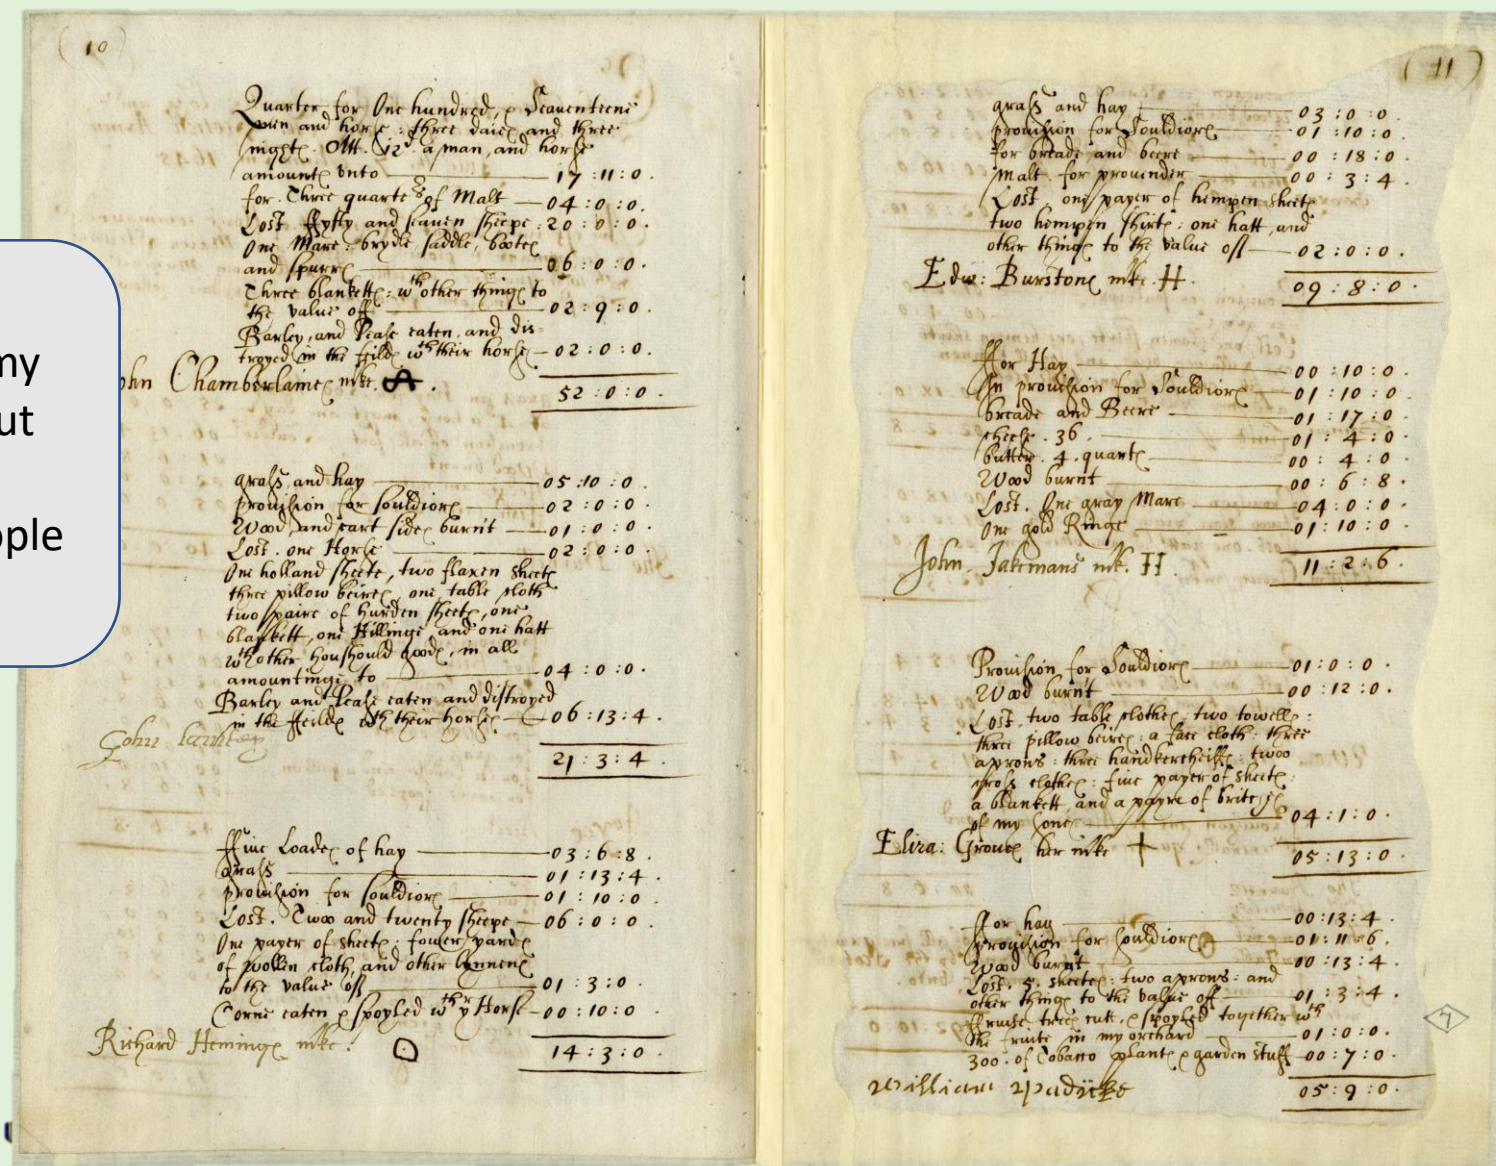 my
ut
ple
( 10 )
Quarter for One hundred, & Seauenteene
men and horse : three daies and three
nights. Att. 12d a man, and horse
amounts vnto 17 : 11 : 0 .
for. Three quarters of Malt 04 : 0 : 0 .
Lost ffyfty and seauen sheepe : 20 : 0 : 0 .
One Mare : brydle saddle, bootes
and spurrs 06 : 0 : 0 .
Three blanketts : wth other things to
the value off 02 : 9 : 0 .
Barley, and Pease eaten, and dis-
troyed in the feilds wth their horses 02 : 0 : 0 .
ohn Chamberlaines mke.
52 : 0 : 0 .
grass, and hay 05 : 10 : 0 .
prouision for souldiors 02 : 0 : 0 .
Wood and cart sides burnt 01 : 0 : 0 .
Lost. one Horse 02 : 0 : 0 .
One holland sheete, two flaxen sheets
three pillow beires, one table cloth
two paire of hurden sheets, one
blankett, one Hillinge, and one hatt
wth other houshould goods, in all
amountinge to 04 : 0 : 0 .
Barley and Pease eaten and distroyed
in the ffeilds wth their horses 06 : 13 : 4 .
John
21 : 3 : 4 .
ffiue Loades of hay 03 : 6 : 8 .
grass 01 : 13 : 4 .
prouision for souldiors 01 : 10 : 0
Lost. Twoo and twenty sheepe 06 : 0 : 0 .
One payer of sheets : fower yards
of wollen cloth, and other lynnens
to the value off 01 : 3 : 0 .
Corne eaten & spoyled wth yr Horse 00 : 10 : 0
Richard Hemings mke :
14 : 3 : 0 .
( 11 )
grass and hay 03 : 0 : 0 .
prouision for Souldiors 01 : 10 : 0 .
for breade and beere 00 : 18 : 0 .
Malt for prouinder 00 : 3 : 4 .
Lost. one payer of hempen sheets
two hempen shirts : one hatt, and
other things to the value off 02 : 0 : 0 .
Edw: Burstons mke. H.
09 : 8 : 0 .
ffor Hay 00 : 10 : 0 .
In prouision for Souldiors 01 : 10 : 0 .
breade and Beere 01 : 17 : 0 .
cheese . 36 . 01 : 4 : 0 .
butter . 4 . quarts 00 : 4 : 0 .
Wood burnt 00 : 6 : 8 .
Lost. One gray Mare 04 : 0 : 0 .
One gold Ringe 01 : 10 : 0 .
John. Jakemans mk. II.
11 : 2 : 6 .
Prouision for Souldiors 01 : 0 : 0 .
Wood burnt 00 : 12 : 0 .
Lost. two table clothes : two towells :
three pillow beires : a face cloth : three
aprons : three handkercheiffs : twoo
cross clothes : fiue payer of sheets :
a blankett, and a payre of
of my sones 04 : 1 : 0 .
Eliza: Groues her mke +
05 : 13 : 0 .
ffor hay 00 : 13 : 4 .
prouision for souldiors 01 : 11 : 6 .
Wood burnt 00 : 13 : 4 .
Lost. 5. sheetes : two aprons : and
other things to the value off 01 : 3 : 4 .
ffruite trees cutt, & spoyled together wth
the fruite in my orchard 01 : 0 : 0 .
300 . of Tobacco plants & garden stuff 00 : 7 : 0 .
William
05 : 9 : 0 .